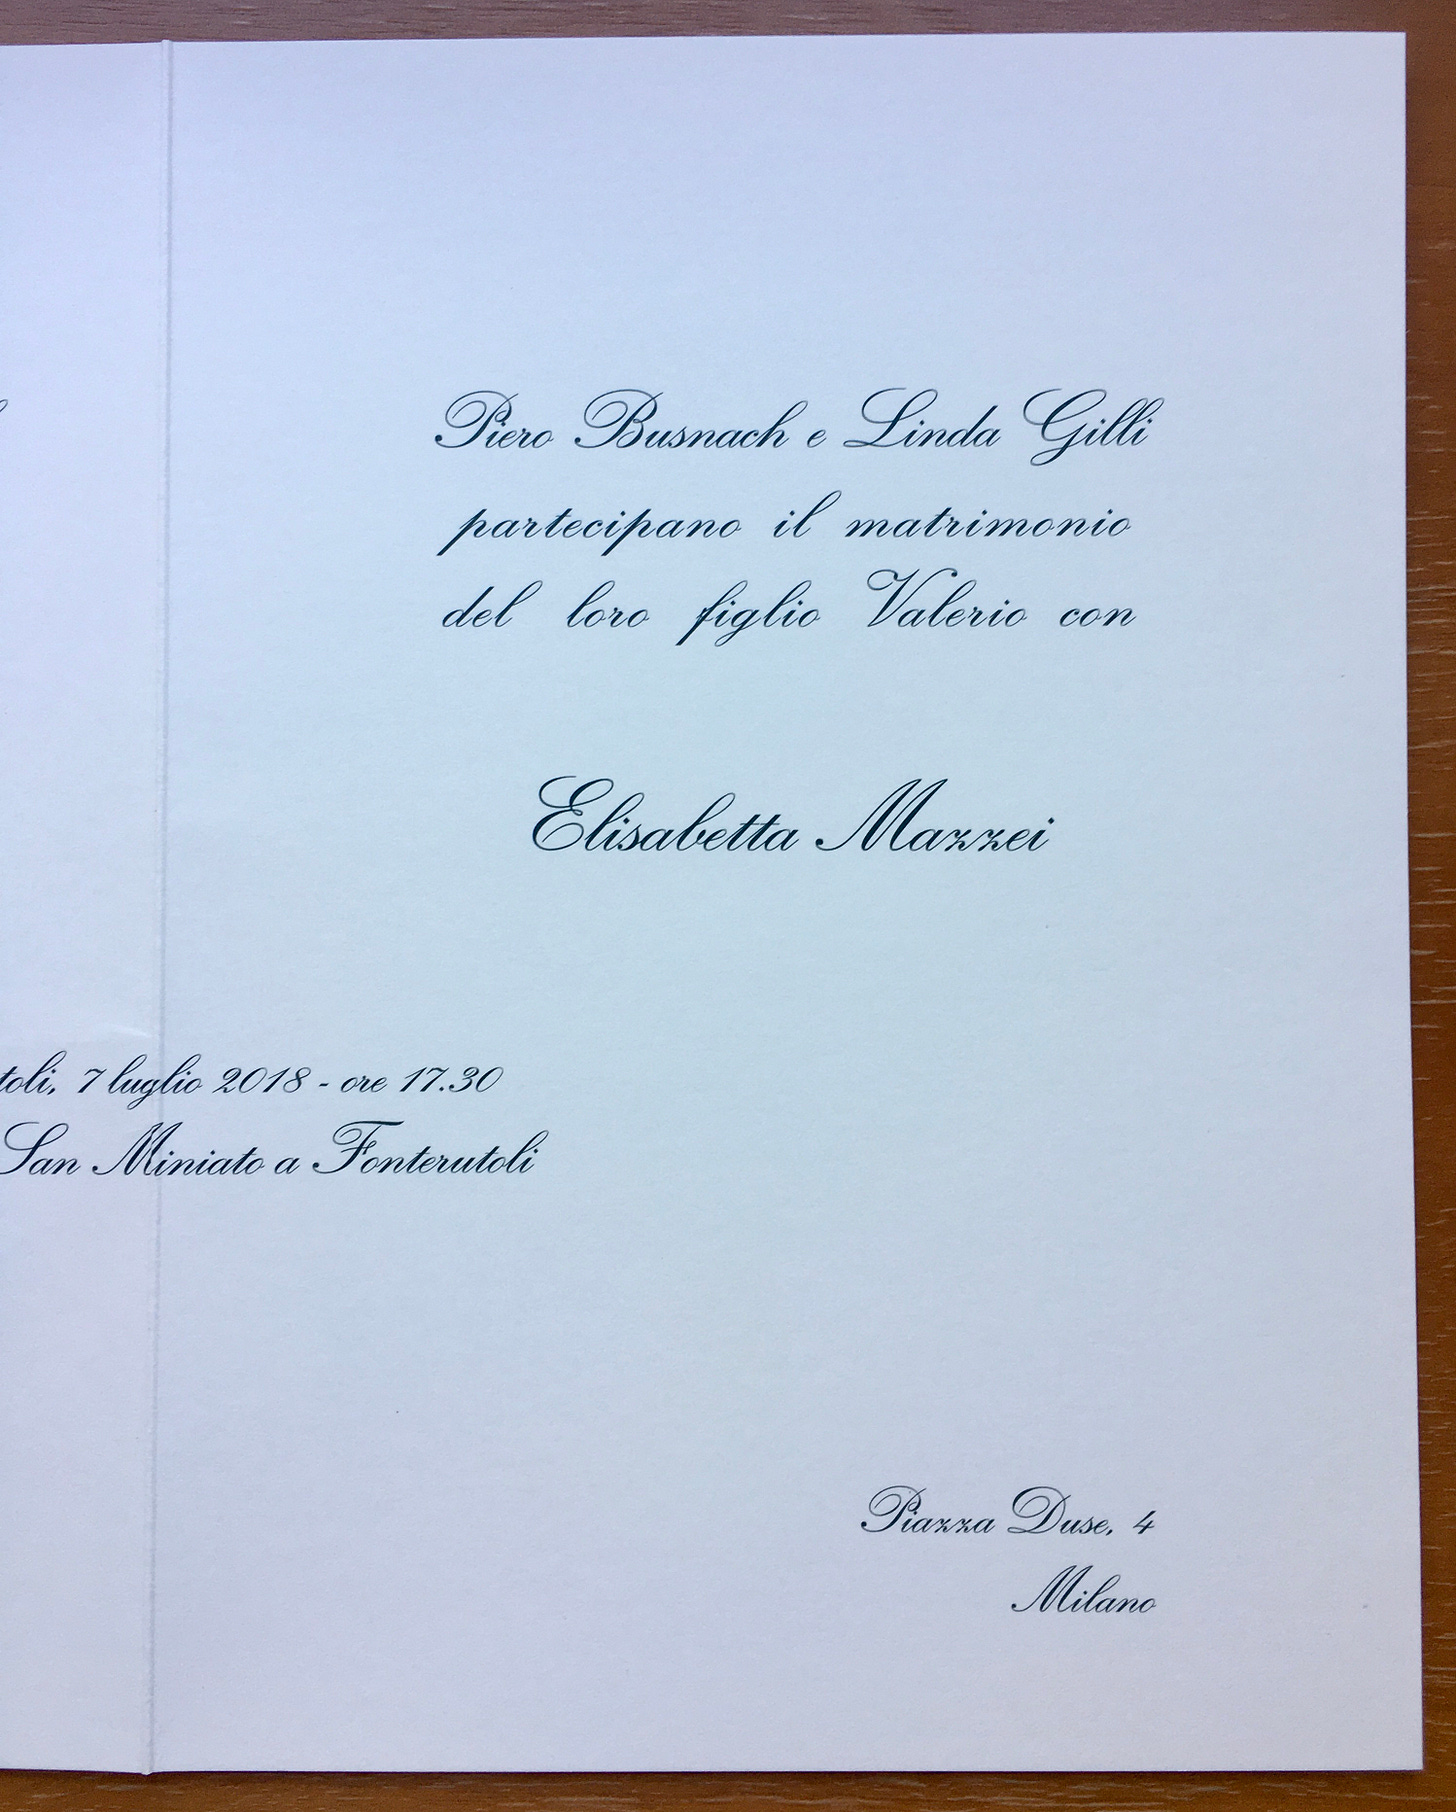 Piero Busnach e Linda Gilli
partecipano il matrimonio
del loro figlio Valerio con
Elisabetta Mazzei
7 luglio 2018 - ore 17.30
San Miniato a Fonterutoli
Piazza Duse, 4
Milano